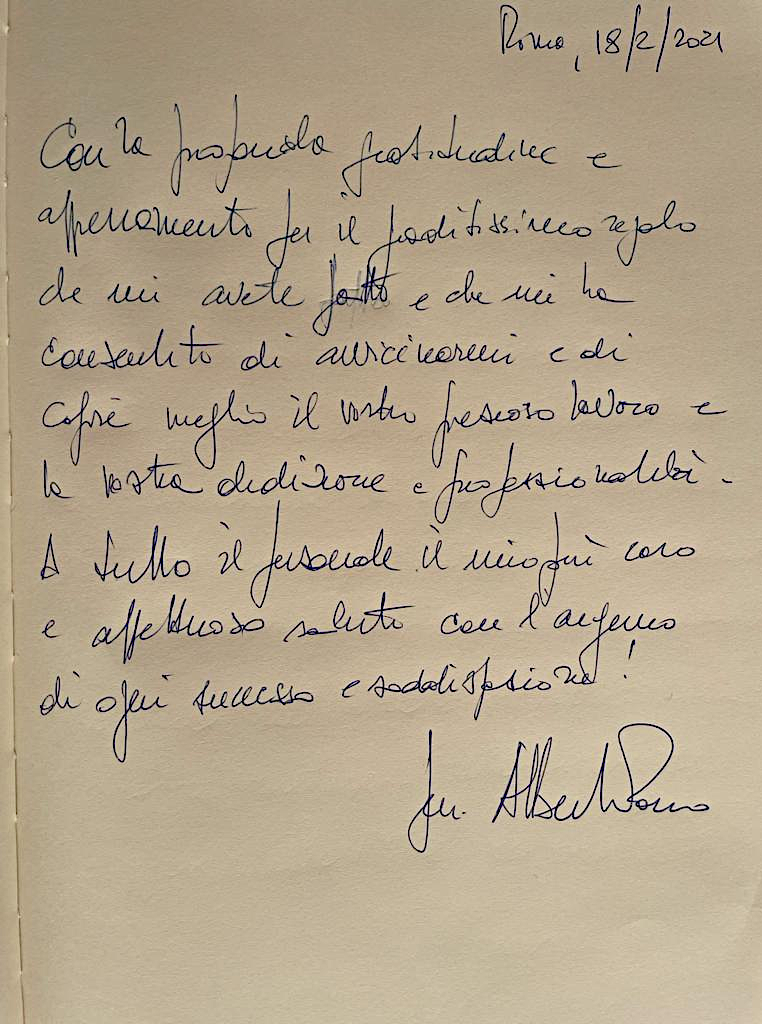 Roma, 18/2/2021
Con la profonda gratitudine e
apprezzamento per il graditissimo regalo
che mi avete fatto e che mi ha
consentito di avvicinarmi e di
capire meglio il vostro prezioso lavoro e
la vostra dedizione e professionalità.
A tutto il personale il mio più caro
e affettuoso saluto con l'augurio
di ogni successo e soddisfazione!
Alberto